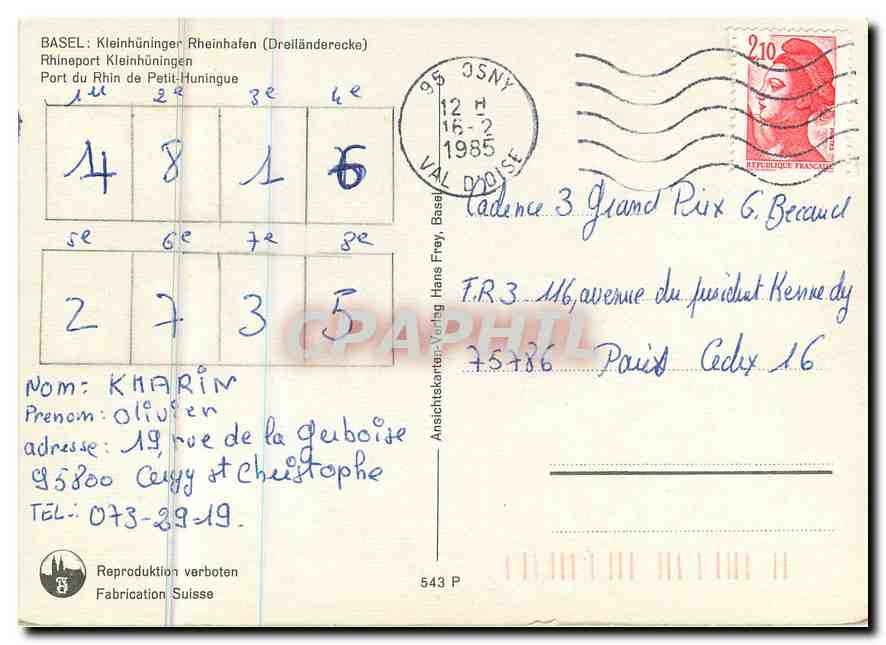 BASEL: Kleinhüninger Rheinhafen (Dreiländerecke)
Rhineport Kleinhüningen
Port du Rhin de Petit-Huningue
1er 2e 3e 4e
4 8 1 6
5e 6e 7e 8e
2 7 3 5
Nom: KHARIN
Prenom: Olivier
adresse: 19, rue de la
95800 Cergy st Christophe
TEL: 073-29-19.
Reproduktion verboten
Fabrication Suisse
543 P
Ansichtskarten-Verlag Hans Frey, Basel
95 OSNY
12 H
16-2
1985
VAL D'OISE
2,10
POSTES
REPUBLIQUE FRANÇAISE
Cadence 3 Grand Prix G. Becaud
F.R 3 116, avenue du président Kennedy
75786 Paris Cedex 16
CPAPHIL